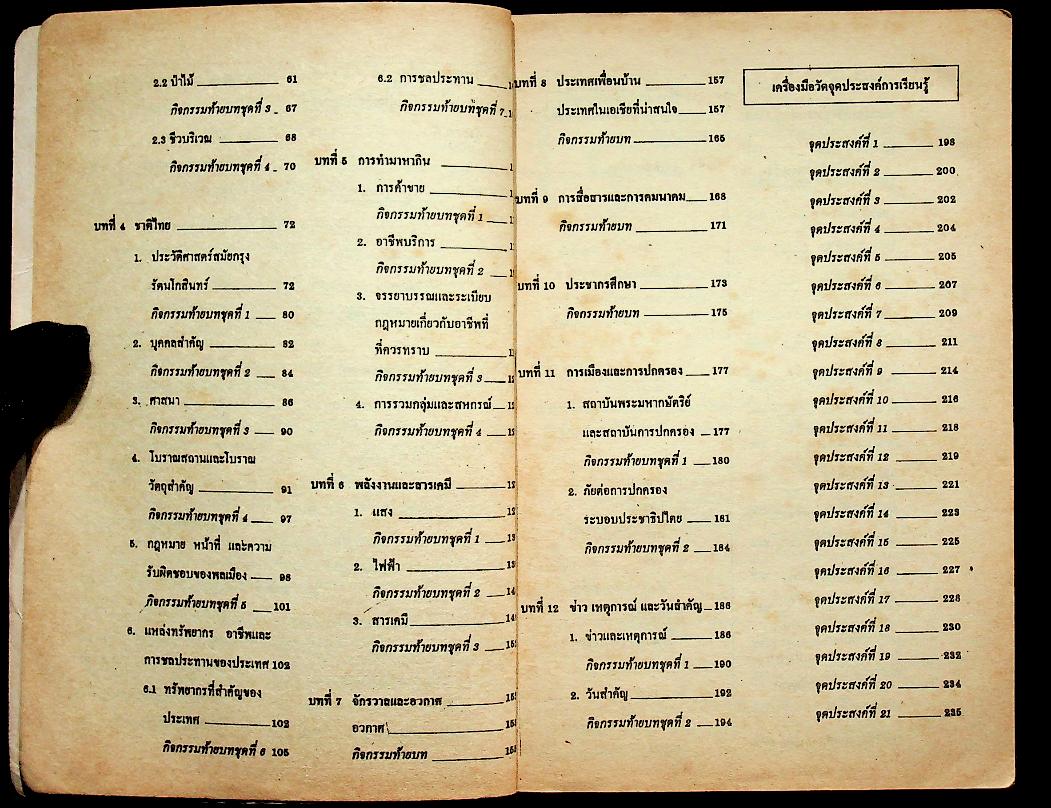 2.2 ป่าไม้ 61
กิจกรรมท้ายบทชุดที่ 3 67
2.3 ชีวบริเวณ 68
กิจกรรมท้ายบทชุดที่ 4 70
บทที่ 4 ชาติไทย 72
1. ประวัติศาสตร์สมัยกรุง
รัตนโกสินทร์ 72
กิจกรรมท้ายบทชุดที่ 1 80
2. บุคคลสำคัญ 82
กิจกรรมท้ายบทชุดที่ 2 84
3. ศาสนา 86
กิจกรรมท้ายบทชุดที่ 3 90
4. โบราณสถานและโบราณ
วัตถุสำคัญ 91
กิจกรรมท้ายบทชุดที่ 4 97
5. กฎหมาย หน้าที่ และความ
รับผิดชอบของพลเมือง 98
กิจกรรมท้ายบทชุดที่ 5 101
6. แหล่งทรัพยากร อาชีพและ
การชลประทานของประเทศ 102
6.1 ทรัพยากรที่สำคัญของ
ประเทศ 102
กิจกรรมท้ายบทชุดที่ 6 105
6.2 การชลประทาน
กิจกรรมท้ายบทชุดที่ 7
บทที่ 5 การทำมาหากิน
1. การค้าขาย
กิจกรรมท้ายบทชุดที่ 1
2. อาชีพบริการ
กิจกรรมท้ายบทชุดที่ 2
3. จรรยาบรรณและระเบียบ
กฎหมายเกี่ยวกับอาชีพที่
ที่ควรทราบ
กิจกรรมท้ายบทชุดที่ 3
4. การรวมกลุ่มและสหกรณ์
กิจกรรมท้ายบทชุดที่ 4
บทที่ 6 พลังงานและสารเคมี
1. แสง
กิจกรรมท้ายบทชุดที่ 1
2. ไฟฟ้า
กิจกรรมท้ายบทชุดที่ 2
3. สารเคมี
กิจกรรมท้ายบทชุดที่ 3
บทที่ 7 จักรวาลและอวกาศ
อวกาศ
กิจกรรมท้ายบท
บทที่ 8 ประเทศเพื่อนบ้าน 157
ประเทศในเอเชียที่น่าสนใจ 157
กิจกรรมท้ายบท 165
บทที่ 9 การสื่อสารและการคมนาคม 168
กิจกรรมท้ายบท 171
บทที่ 10 ประชากรศึกษา 173
กิจกรรมท้ายบท 175
บทที่ 11 การเมืองและการปกครอง 177
1. สถาบันพระมหากษัตริย์
และสถาบันการปกครอง 177
กิจกรรมท้ายบทชุดที่ 1 180
2. ภัยต่อการปกครอง
ระบอบประชาธิปไตย 181
กิจกรรมท้ายบทชุดที่ 2 184
บทที่ 12 ข่าว เหตุการณ์ และวันสำคัญ 186
1. ข่าวและเหตุการณ์ 186
กิจกรรมท้ายบทชุดที่ 1 190
2. วันสำคัญ 192
กิจกรรมท้ายบทชุดที่ 2 194
เครื่องมือวัดจุดประสงค์การเรียนรู้
จุดประสงค์ที่ 1 198
จุดประสงค์ที่ 2 200
จุดประสงค์ที่ 3 202
จุดประสงค์ที่ 4 204
จุดประสงค์ที่ 5 205
จุดประสงค์ที่ 6 207
จุดประสงค์ที่ 7 209
จุดประสงค์ที่ 8 211
จุดประสงค์ที่ 9 214
จุดประสงค์ที่ 10 216
จุดประสงค์ที่ 11 218
จุดประสงค์ที่ 12 219
จุดประสงค์ที่ 13 221
จุดประสงค์ที่ 14 223
จุดประสงค์ที่ 15 225
จุดประสงค์ที่ 16 227
จุดประสงค์ที่ 17 228
จุดประสงค์ที่ 18 230
จุดประสงค์ที่ 19 232
จุดประสงค์ที่ 20 234
จุดประสงค์ที่ 21 235